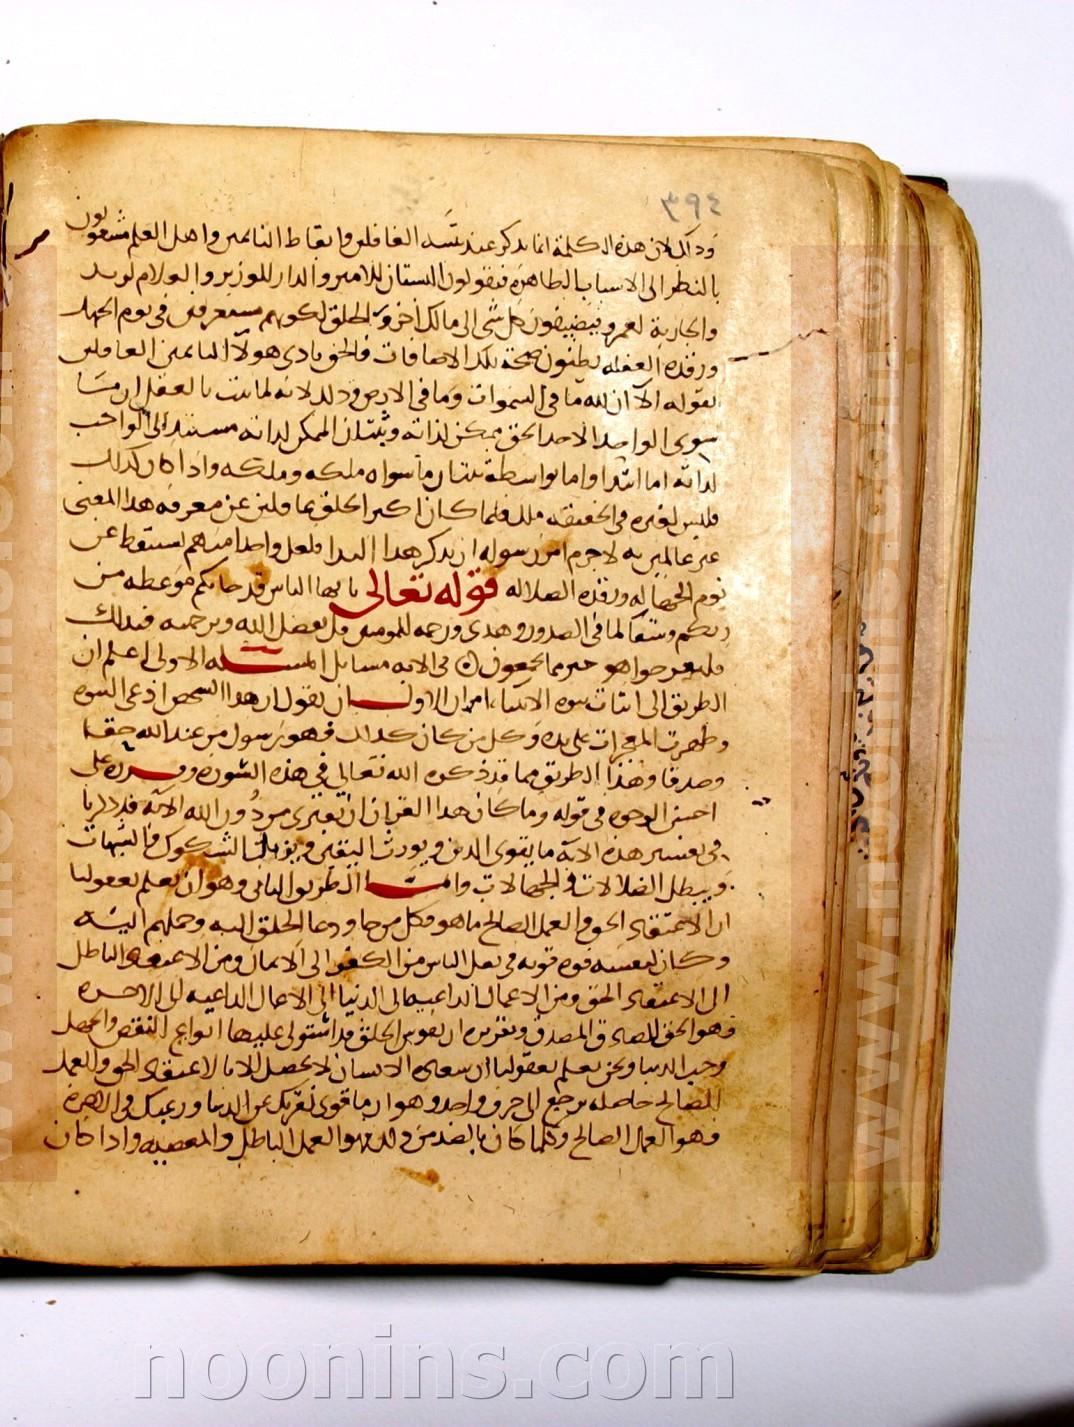 ٣٩٤
وذلك لان هذه الكلمة انما يذكر عند تنبيه الغافلين وايقاظ النائمين واهل العلم مشغولون
بالنظر الى الاسباب الظاهره فيقولون البستان للامير والدار للوزير والغلام لزيد
والجارية لعمرو فيضيفون كل شى الى مالك اخر والخلق لكونهم مستغرقين فى نوم الجهل
ورقدة الغفله يظنون صحة تلك الاضافات فالحق نادى هولا النائمين الغافلين
بقوله الا ان لله ما فى السموات وما فى الارض وذلك لانه لما ثبت بالعقل ان ما
سوى الواحد الاحد الحق ممكن لذاته وثبت ان الممكن لذاته مستند الى الواجب
لذاته اما ابتدا واما بواسطة ثبت ان ما سواه ملكه وملكه واذا كان كذلك
فليس لغيره فى الحقيقه ملك فلما كان اكثر الخلق غافلين عن معرفه هذا المعنى
غير عالمين به لاجرم امر رسوله ان يذكر هذا الندا فلعل واحدا منهم يستيقظ عن
نوم الجهاله ورقدة الضلاله قوله تعالى يا يها الناس قد جاتكم موعظه من
ربكم وشفا لما فى الصدور وهدى ورحمه للمومنين قل بفضل الله وبرحمته فبذلك
فليفرحوا هو خير مما يجمعون فى الايه مسائل المسله الاولى اعلم ان
الطريق الى اثبات نبوه الانبيا امران الاول ان نقول ان هذا الشخص ادعى النبوه
وظهرت المعجزات على يده وكل من كان كذلك فهو رسول من عند الله حقا
وصدقا وهذا الطريق مما قد ذكره الله تعالى فى هذه السورة وقرره على
احسن الوجوه فى قوله وما كان هذا القران ان يفترى من دون الله الايه وقد ذكرنا
فى تفسير هذه الايه ما يقوى الدين ويورث اليقين ويزيل الشكوك والشبهات
ويبطل الضلالات والجهالات واما الطريق الثانى وهو ان نعلم بعقولنا
ان الاعتقاد الحق والعمل الصالح ما هو فكل من جا ودعا الخلق اليه وحملهم اليه
وكان لنفسه قوه قويه فى نقل الناس من الكفر الى الايمان ومن الاعتقاد الباطل
الى الاعتقاد الحق ومن الاعمال الداعيه الى الدنيا الى الاعمال الداعيه الى الاخره
فهو الحق الصادق المصدق وتقريره ان نفوس الخلق قد استولى عليها انواع النقص والجهل
وحب الدنيا ونحن نعلم بعقولنا ان سعادة الانسان لا يحصل الا بالاعتقاد الحق والعمل
الصالح حاصله يرجع الى حرف واحد وهو ان ما قوى نفرتك عن الدنيا ورغبتك فى الاخرة
فهو العمل الصالح وكلما كان بالضد من ذلك فهو العمل الباطل والمعصيه واذا كان
noonins.com
www.noonins.com